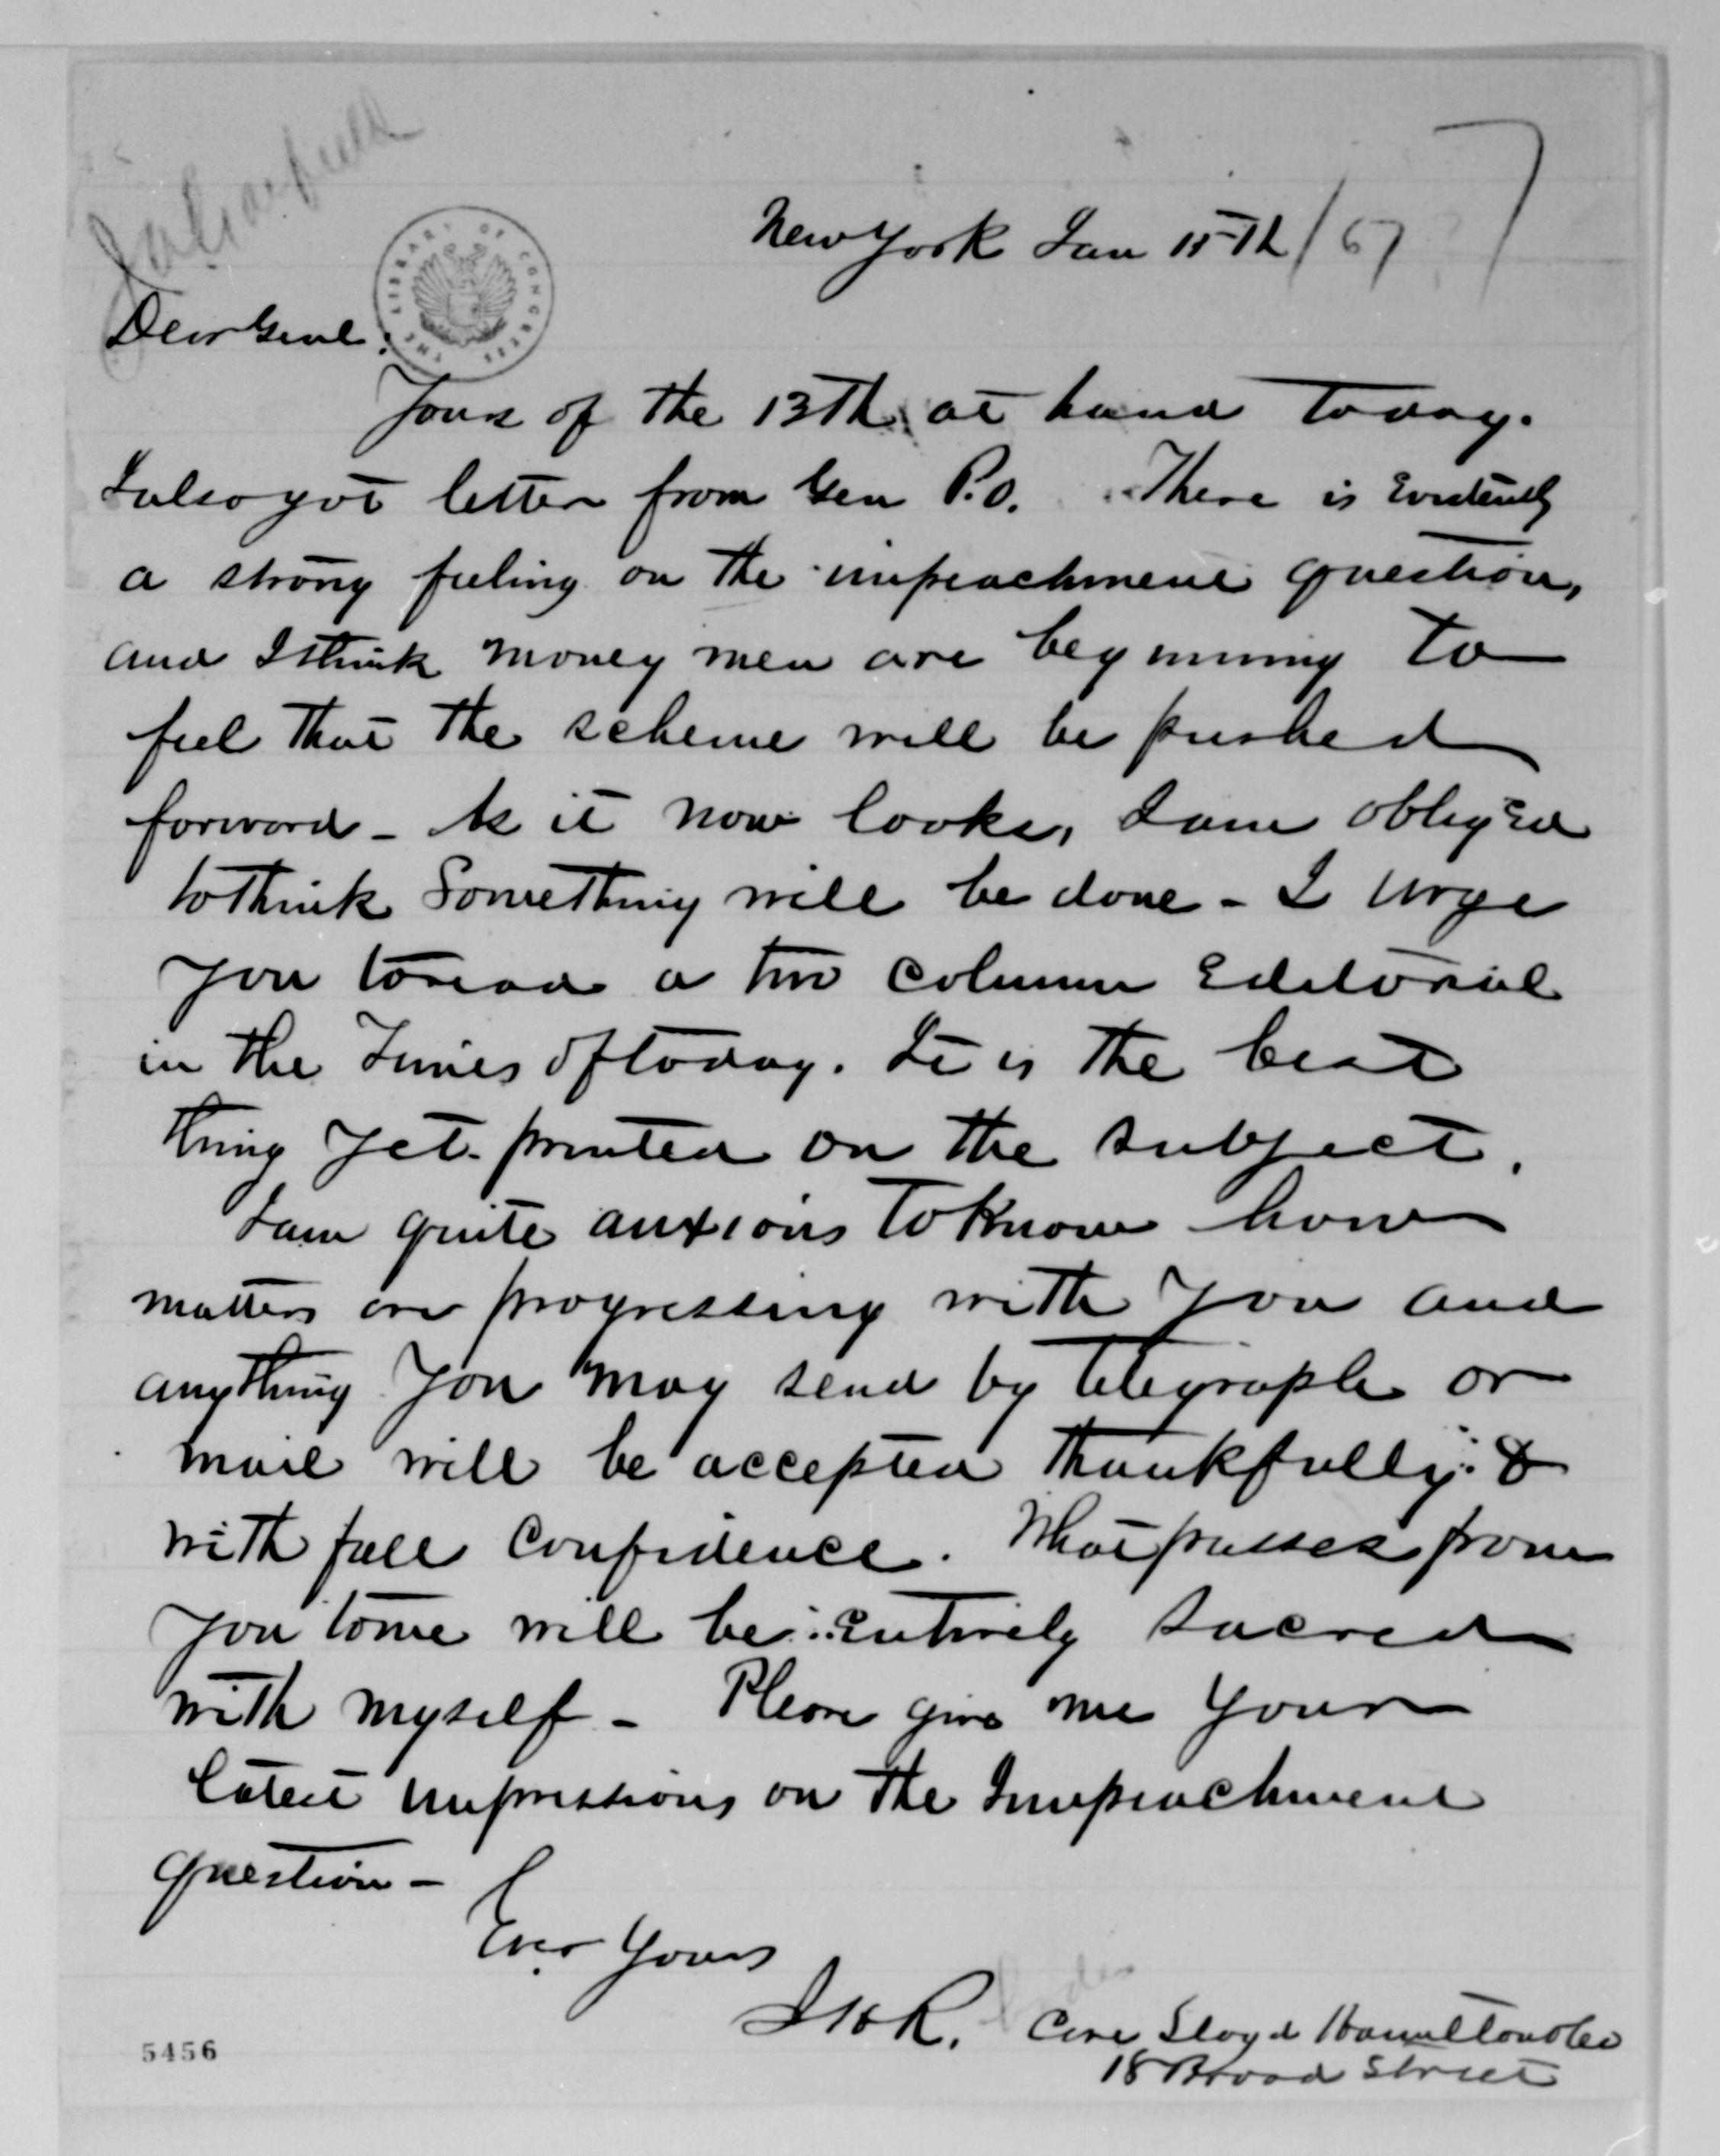 JAGarfield
New York Jan 15th/67
THE LIBRARY OF CONGRESS
Dear Genl:
Yours of the 13th at hand today.
I also got letter from Gen P.O. There is Evidently
a strong feeling on the impeachment question,
and I think money men are beginning to
feel that the scheme will be pushed
forward - As it now looks, I am obliged
to think Something will be done - I urge
you to read a two column Editorial
in the Times of today. It is the best
thing yet printed on the subject.
I am quite anxious to know how
matters are progressing with you and
anything you may send by telegraph or
mail will be accepted thankfully &
with full confidence. What passes from
you to me will be entirely sacred
with myself - Please give me your
latest impressions on the Impeachment
question -
Ever Yours
Care Lloyd Hamilton & Co
18 Broad Street
5456